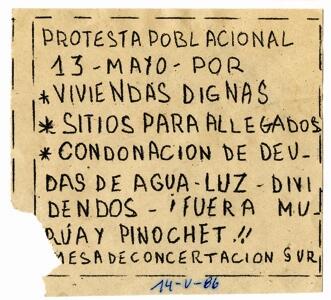 PROTESTA POBLACIONAL
13-MAYO-POR
* VIVIENDAS DIGNAS
* SITIOS PARA ALLEGADOS
* CONDONACION DE DEU-
DAS DE AGUA-LUZ-DIVI
DENDOS-¡FUERA MU-
ÑÚA Y PINOCHET.!!
MESA DE CONCERTACION SUR
14-V-86